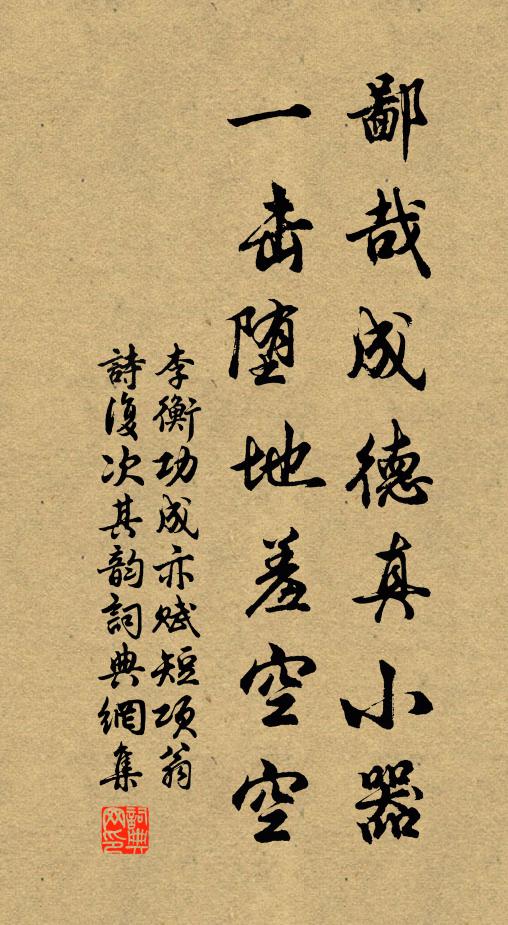 鄙哉成德真小器
一击堕地羞空空
李衡功成亦赋短项翁
詩復次其韵詞典網集
詞典
网印